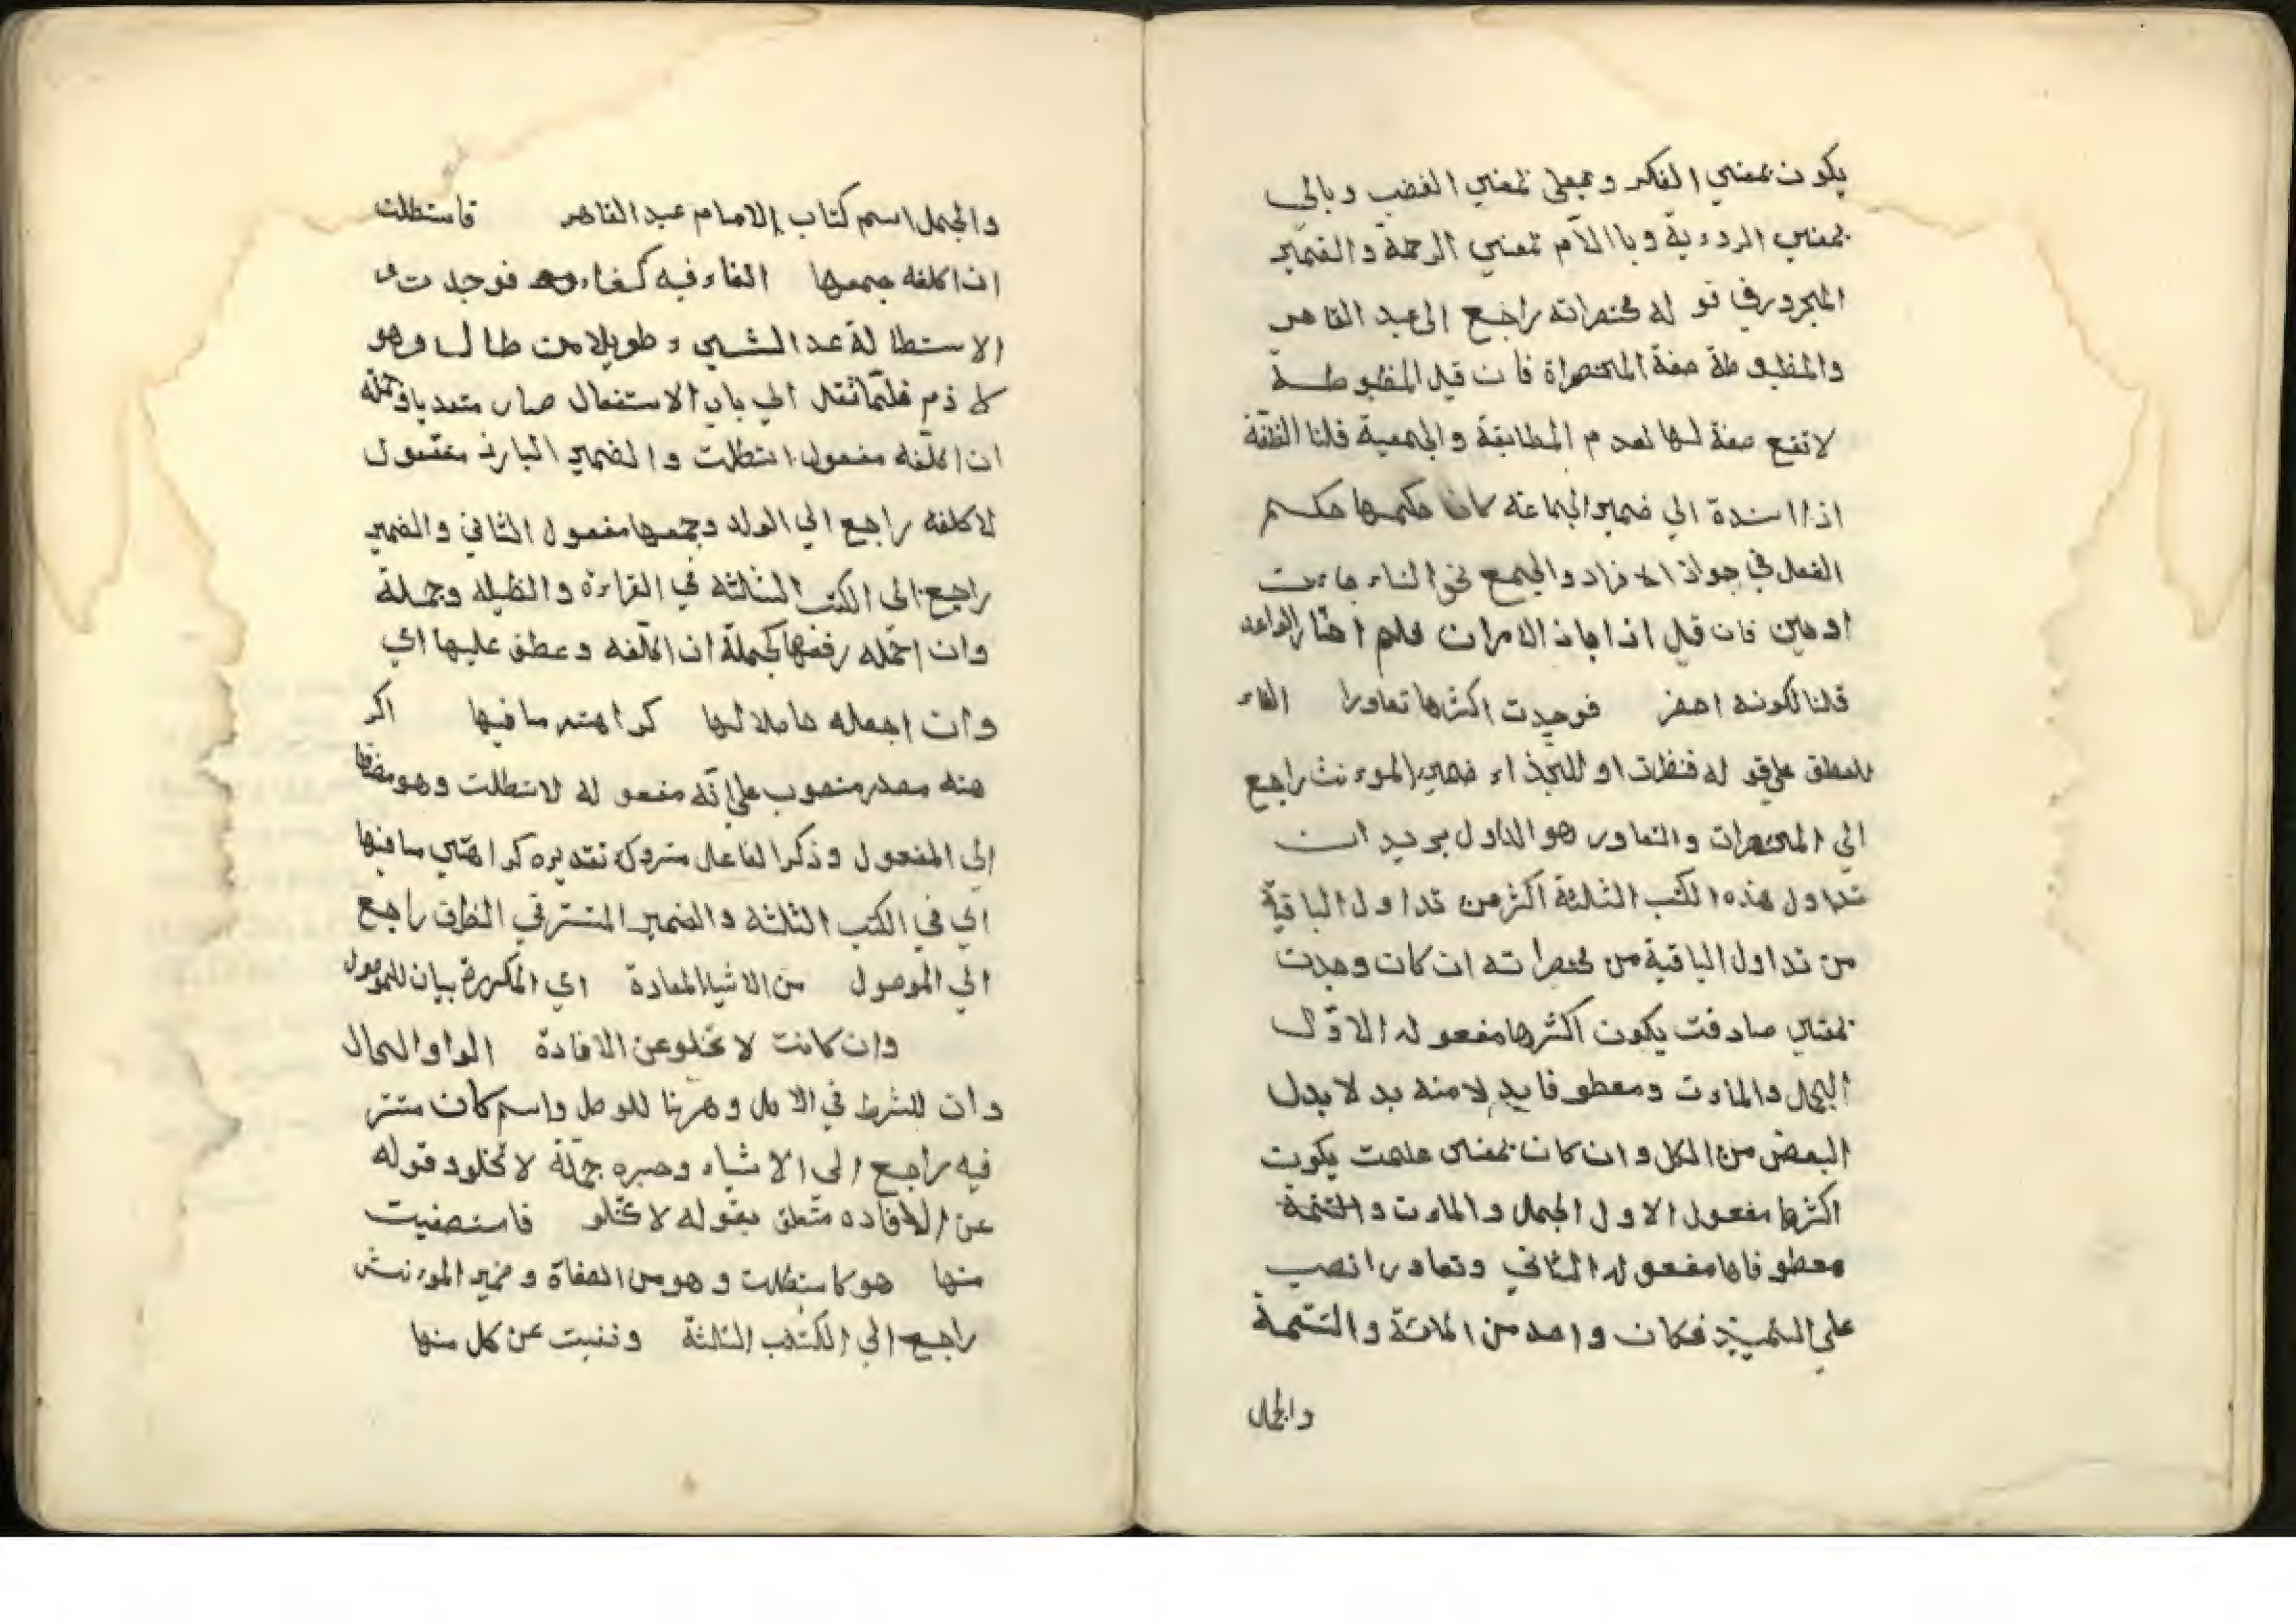 يكون بمعني الفكر وبعلي بمعني الغضب وبالي
بمعني الردءية وباالآم بمعني الرحمة والضمير
المجرور في قو له مختصراته راجع الى عبد القاهر
والمضبو طة صفة المختصراة فان قيل المضبوطة
لا تقع صفة لها لعدم المطابقة والجمعية قلنا الصّفة
اذا اسندة الي ضمير الجماعة كان حكمها حكم
الفعل في جواز الافراد والجمع نحو النساء جاءت
او جاين فان قيل اذا جاز الامران فلم اختار الواحد
قلنا لكونه اخصر فوجدت اكثرها تعاورا الفاء
للعطف علي قو له فنظرت او للجذاء ضمير الموءنث راجع
الي المختصرات والتعاور هو التداول يريد ان
تداول هذه الكتب الثلاثة اكثر من تداول الباقية
من تداول الباقية من مختصراته ان كان وجدت
بمعني صادفت يكون اكثرها مفعوله الاوّل
الجمل والماءت ومعطوفا بدلا منه بد لا بدل
البعض من الكل وان كان بمعني علمت يكون
اكثرها مفعول الاول الجمل والماءت والتتمة
معطوفاها مفعوله الثاني وتعاورا نصب
علي التمييز فكان واحد من المائة والتتمة
والجمل
والجمل اسم كتاب الامام عبد القاهر فاستطلت
ان اكلفه جمعها الفاء فيه كفاء فوجدت و
الاستطالة عد الشيي ء طويلا من طال وهو
لا ذم فلمّا نقل الي باب الاستفعال صار متعديا وجملة
ان اكلّفه مفعول استطلت والضمير البارز مفعول
لاكلفه راجع الي الولد وجمعها مفعول الثاني والضمير
راجع الي الكتب الثلثة في القراءة و وجملة
وان احمله رفعها كجملة ان اكلّفه وعطف عليها اي
وان اجعله حاملا لها كراهته ما فيها اكر
هته مصدر منصوب علي انّه مفعو له لاستطلت وهو مضاف
الي المفعول وذكر الفاعل متروك تقديره كراهتي ما فيها
اي في الكتب الثلثة والضمير المستتر في الظرف راجع
الي الموصول من الاشياء المعادة اي المكررة بيان للموصول
وان كانت لا تخلو عن الافادة الواو للحال
وان للشرط في الاصل وهرنا للوصل واسم كان مستتر
فيه راجع الى الاشياء وخبره جملة لا تخلو وقوله
عن الافاده متعلق بقوله لا تخلو فاستصفيت
منها هو كاستطلت وهو من الصفاة وضمير الموءنث
راجع الي الكتب الثلثة ونفيت عن كل منها